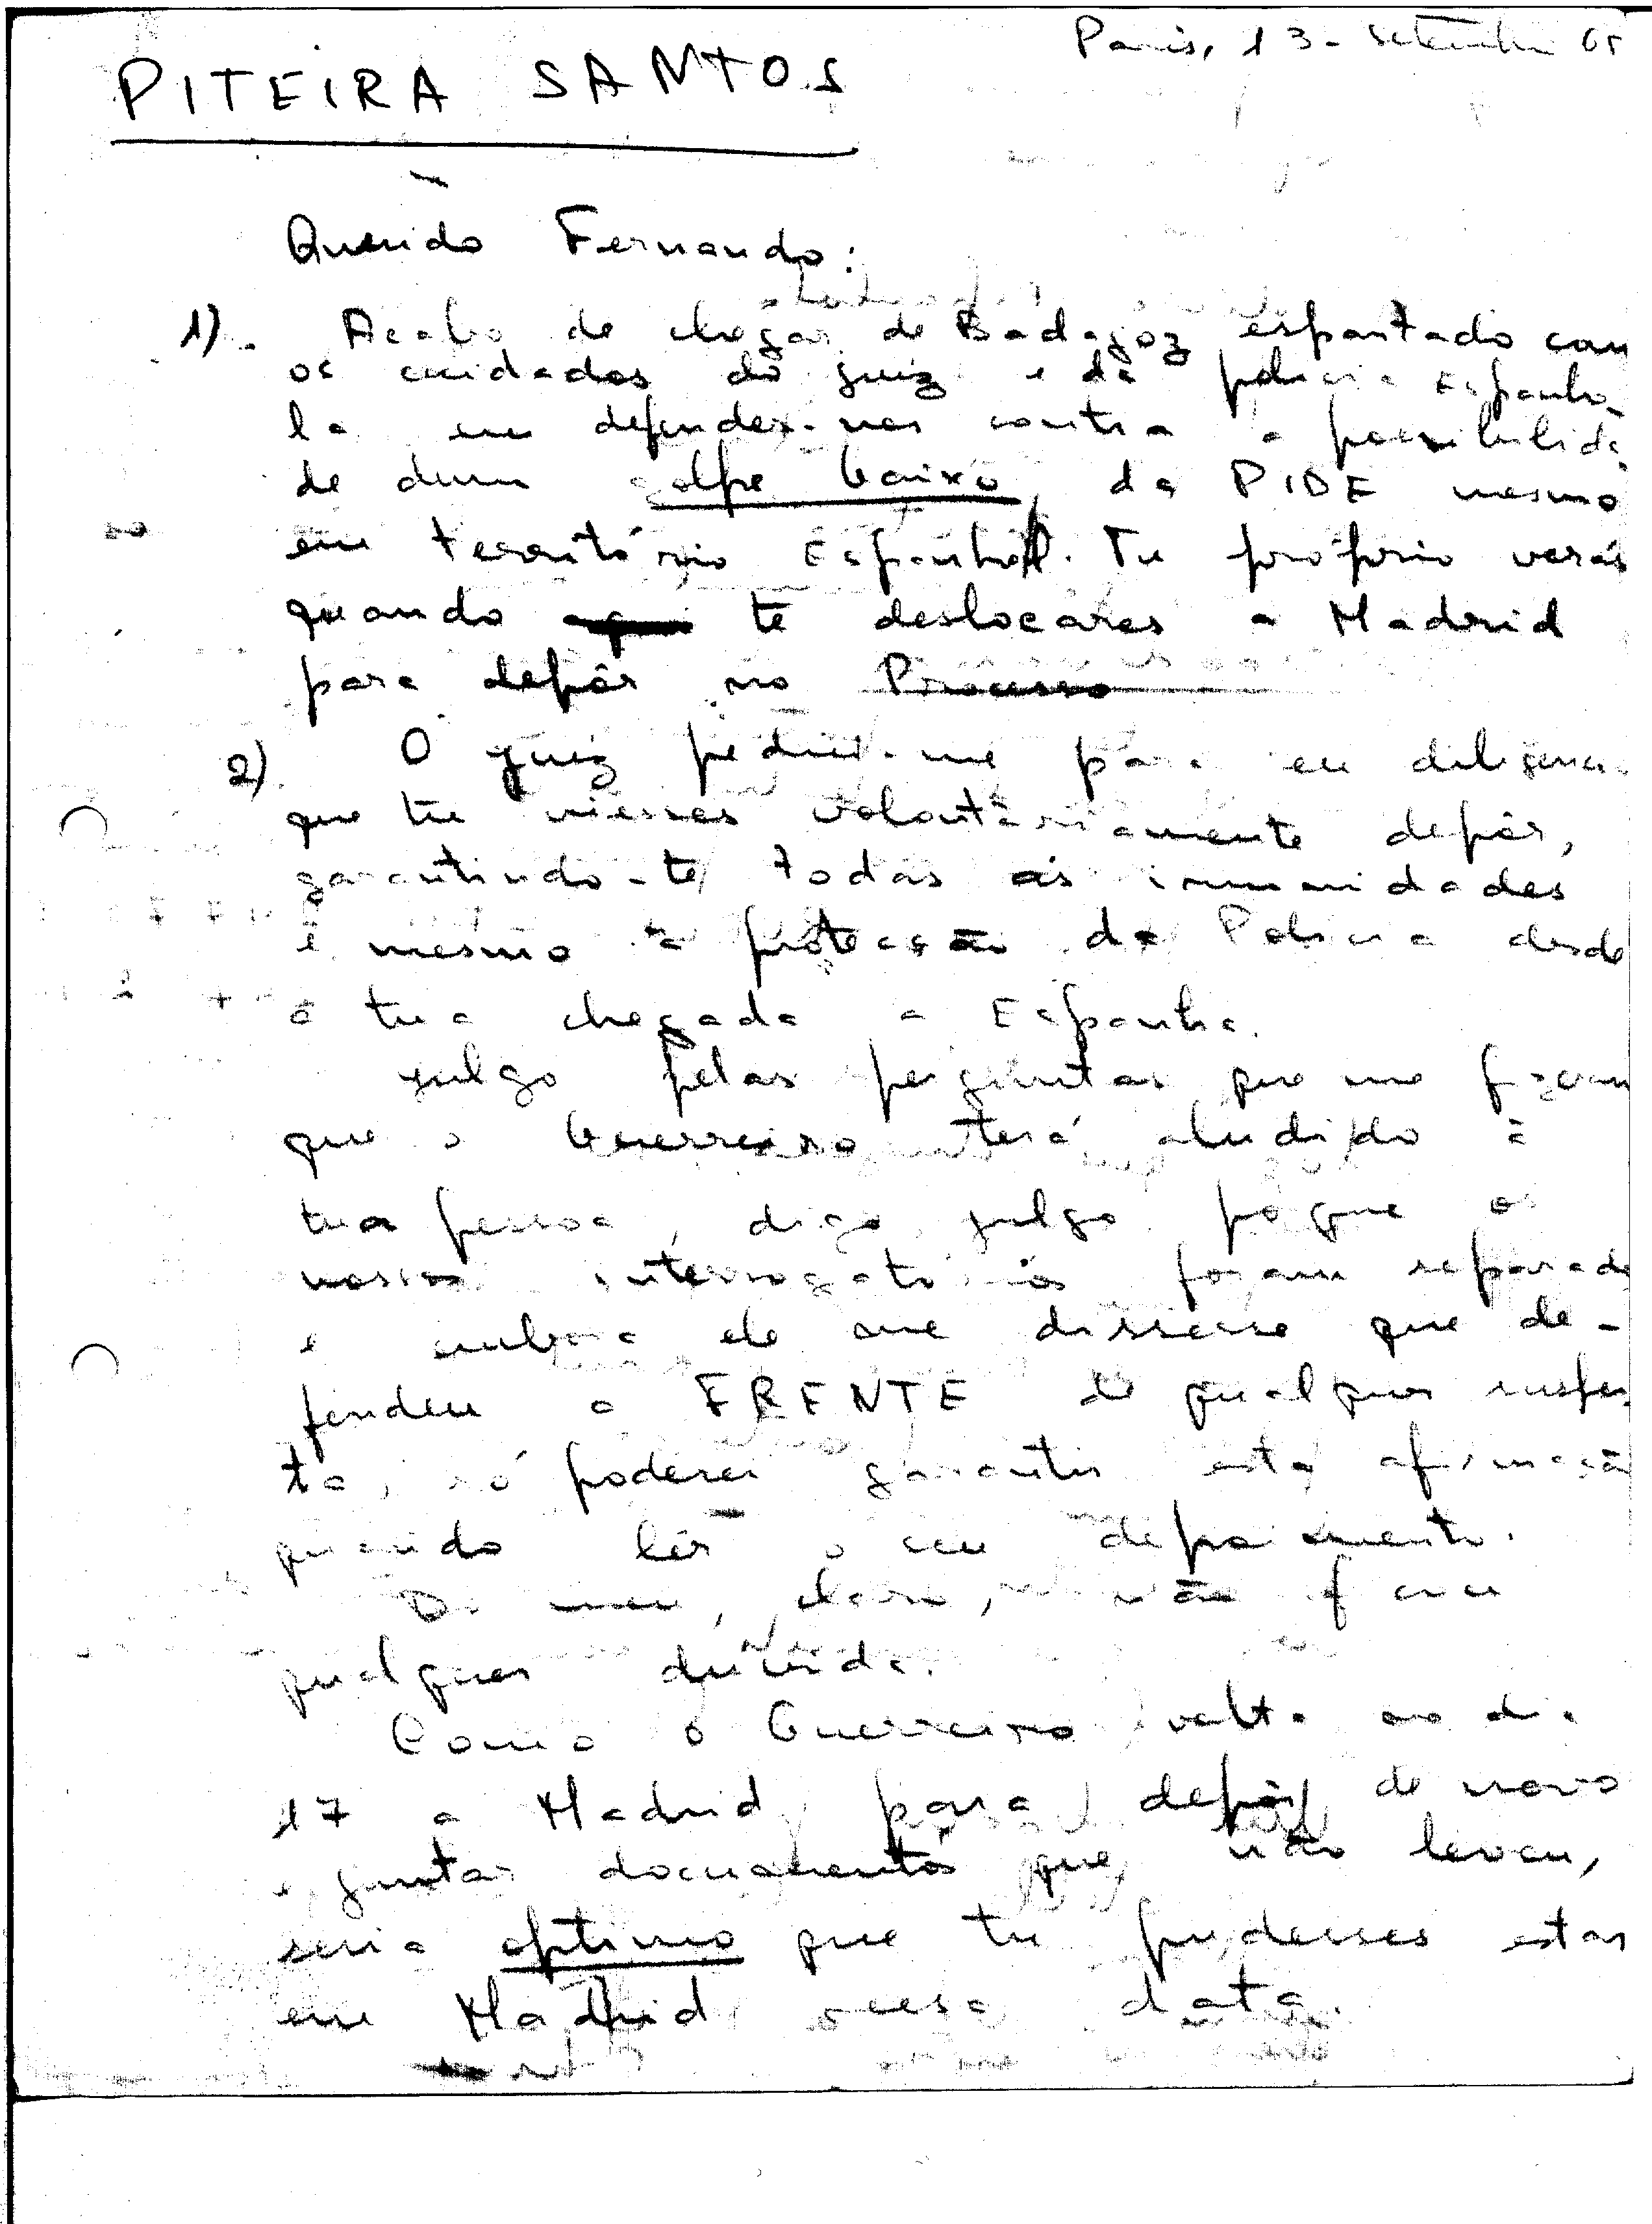 Paris, 13 - Setembro 65
PITEIRA SANTOS
Querido Fernando:
1). Acabo de chegar de Badajoz espantado com
os cuidados do juiz e da policia Espanho-
la em defender-nos contra a possibilida
de dum golpe baixo, da PIDE mesmo
em território Espanhol. Tu próprio verás
quando te deslocares a Madrid
para depôr no Processo
2) O juiz pediu-me para eu
que tu viesses voluntàriamente depôr,
garantindo-te todas as immunidades
e mesmo a protecção da Policia desde
a tua chegada a Espanha.
Julgo pelas perguntas que me fizeram
que o Guerreiro terá aludido à
tua pessoa, digo julgo porque os
nossos interrogatórios foram separad
e embora ele me dissesse que de-
fendeu a FRENTE de qualquer suspei
ta, só poderei garantir esta afirmaçã
quando lêr o seu depoimento.
Do meu, claro, não
qualquer dúvida.
Como o Guerreiro volta no dia
17 a Madrid para depôr de novo
e juntar documentos que não levou,
seria optimo que tu pudesses estar
em Madrid nessa data.